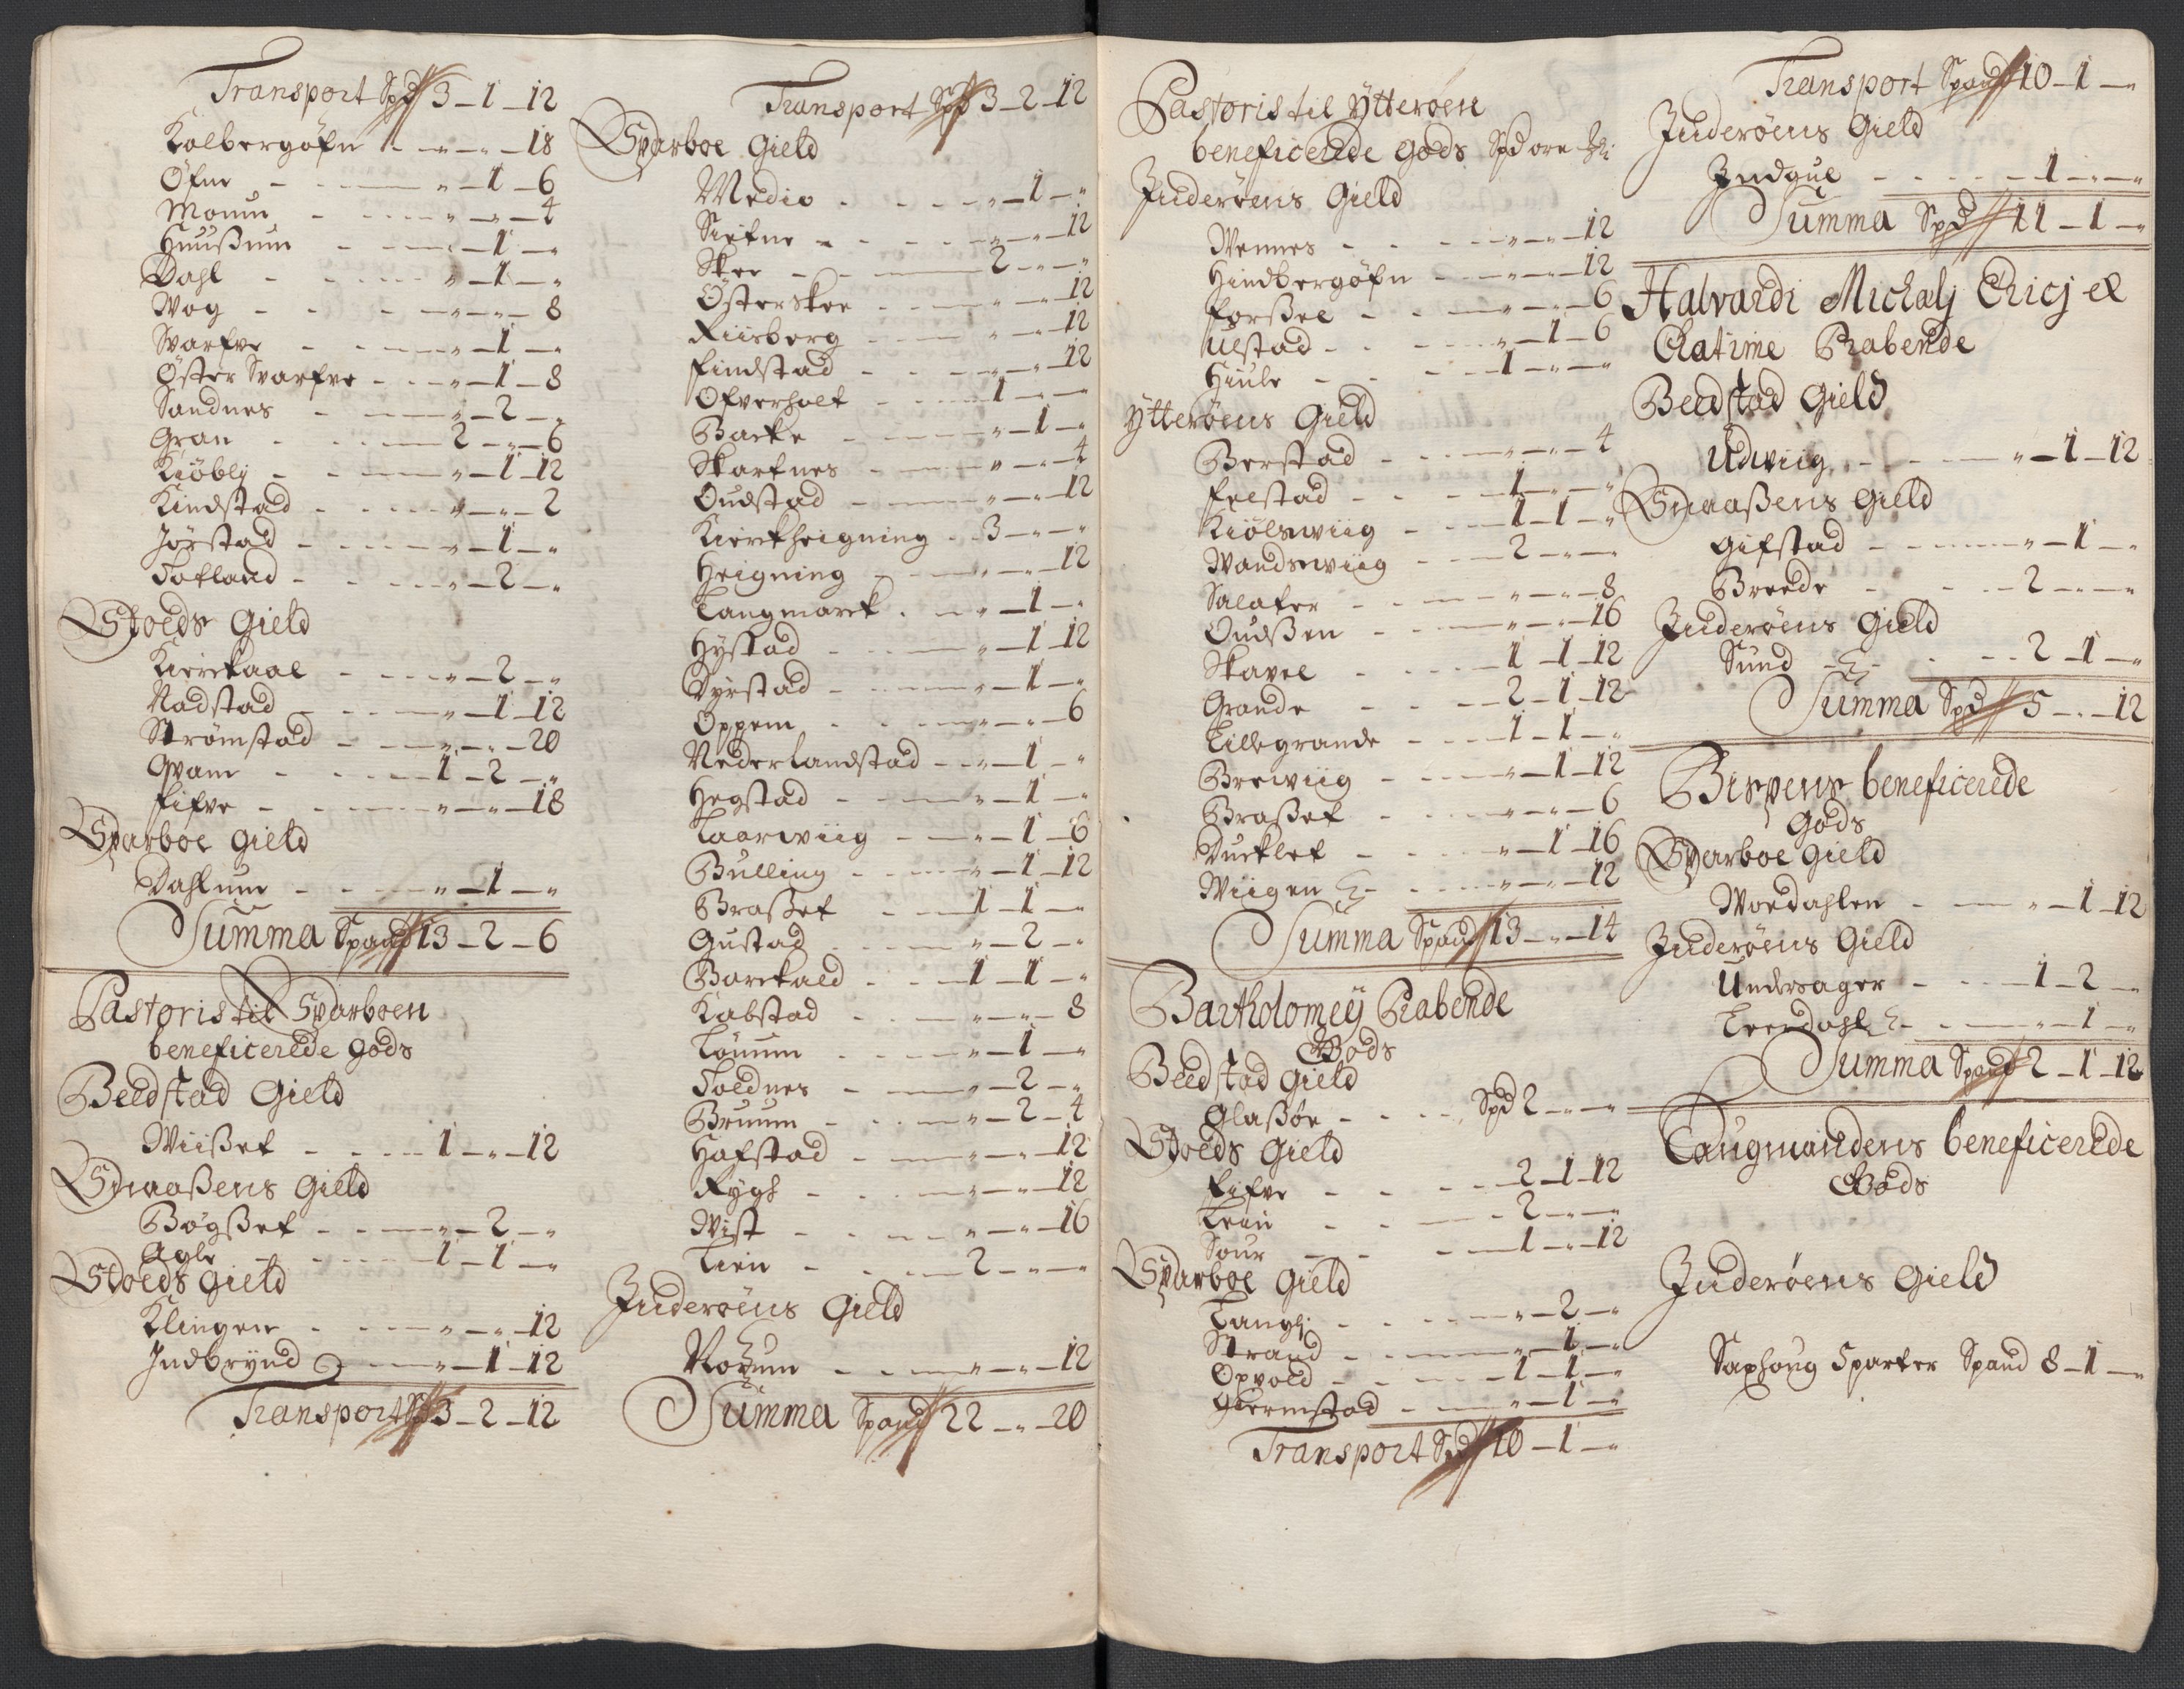 Transport Spd 3 - 1 - 12
Kolbergøfn - - " - " - 18
Øfne - - - " - 1 - 6
Monin - - - " - " - 4
Huußum - - " - 1 - "
Dahl - - - " - 1 - "
Wog - - - " - " - 8
Svarfve - - - " - 1 - "
Øster Svarfve - - " - 1 - 8
Sandnes - - " - 2 - "
Gran - - - 2 - " - 6
Kiøbly - - - " - 1 - 12
Kindstad - - - " - " - 2
Jørstad - - - " - 1 - "
Tofland - - - " - 2 - "
Stoeds Gield
Kirkaal - - - " - 2 - "
Nadstad - - - " - 1 - 12
Strømstad - - " - " - 20
Qvam - - - 1 - 2 - "
Fifve - - - " - " - 18
Sparboe Gield
Dahlum - - - " - 1 - "
Summa Spand 13 - 2 - 6
Pastoris til Sparboen
beneficerede gods
Beedstad Gield
Wiißet - - - 1 - " - 12
Snaaßens Gield
Bøgßet - - - " - 2 - "
Agle - - - 1 - 1 - "
Stoeds Gield
Klingen - - - " - " - 12
Indbrynd - - " - 1 - 12
Transport Spd 3 - 2 - 12
Transport Spd 3 - 2 - 12
Sparboe Gield
Medio - - - " - 1 - "
Sirfne - - - " - " - 12
Sker - - - 2 - " - "
Østerskee - - - " - " - 12
Riisberg - - - " - " - 12
Findstad - - - " - " - 12
Ofverholt - - 1 - " - "
Barke - - - " - 1 - "
Skarfnes - - - " - " - 4
Oudstad - - - " - " - 12
Kierkheigning - - 3 - " - "
Heigning - - - " - " - 12
Langmarck - - " - 1 - "
Hystad - - - " - 1 - 12
Dyrstad - - - " - 1 - "
Oppem - - - " - " - 6
Nederlandstad - - " - 1 - "
Hegstad - - - " - 1 - "
Laarwiig - - - " - 1 - 6
Bulling - - - " - 1 - 12
Braßet - - - 1 - 1 - "
Gustad - - - " - 2 - "
Barekald - - - 1 - 1 - "
Kabstad - - - " - " - 8
Lõuum - - - " - 1 - "
Toldnes - - - " - 2 - "
Bruum - - - " - 2 - 4
Hafstad - - - " - " - 12
Rygh - - - " - " - 12
Wist - - - " - " - 16
Lien - - - 2 - " - "
Inderøens Gield
Norum - - - " - " - 12
Summa Spand 22 - " - 20
Pastoris til Ytterøen
beneficerede gods Spd ore
Inderøens Gield
Wennes - - - " - " - 12
Hindbergøfn - - " - " - 12
Forßee - - - " - " - 6
Ulstad - - - " - 1 - 6
Hiule - - - 1 - " - "
Ytterøens Gield
Berstad - - - " - " - 4
Felstad - - - 1 - " - "
Kiølswiig - - 1 - 1 - "
Wandswiig - - 2 - " - "
Salater - - - " - " - 8
Oudßen - - - " - " - 16
Skavel - - - 1 - 1 - 12
Grande - - - 2 - 1 - 12
Lillegrande - - 1 - 1 - "
Brewiig - - - " - 1 - 12
Braßet - - - " - " - 6
Durklet - - - " - 1 - 16
Wiigen - - - " - " - 12
Summa Spand 13 - " - 14
Bartholomey Prabende
Gods
Beedstad Gield
Glaßøe - - - Spd 2 - " - "
Stoeds Gield
Fifve - - - 2 - 1 - 12
Lein - - - 2 - " - "
Sour - - - 1 - " - 12
Sparboe Gield
Langli - - - " - 2 - "
Strand - - - " - 1 - "
Opvold - - - 1 - 1 - "
Giermstad - - " - 1 - "
Transport Spd 10 - 1 - "
Transport Spand 10 - 1 - "
Inderøens Gield
Indgul - - - - 1 - " - "
Summa Spd 11 - 1 - "
Halvardi Michaly Ericj et
Chatime Prabende
Beedstad Gield
Udwiig - - - " - 1 - 12
Snaaßens Gield
Gifstad - - - " - 1 - "
Breede - - - 2 - " - "
Inderøens Gield
Sund - - - 2 - 1 - "
Summa Spd 5 - " - 12
Bispens beneficerede
Gods
Sparboe Gield
Wordahlen - - " - 1 - 12
Inderøens Gield
Undersager - - - 1 - 2 - "
Leerdahl - - - " - 1 - "
Summa Spand 2 - 1 - 12
Laugmandens beneficerede
Gods
Inderøens Gield
Saxhoug Sparker Spand 8 - 1 - "